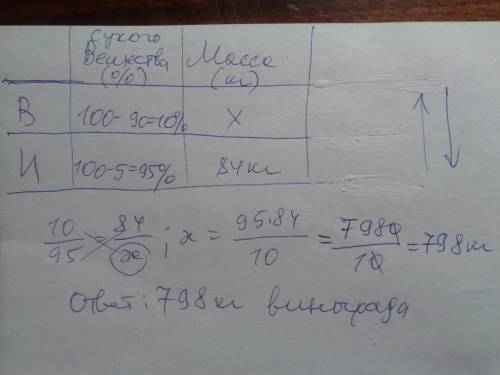 Сухого
Вещества
(%)
Масса
(кг)
В
100-90=10%
X
И
100-5=95%
84кг
10/95 = 84/x ; x = 95·84/10 = 7980/10 = 798кг
Ответ: 798кг винограда